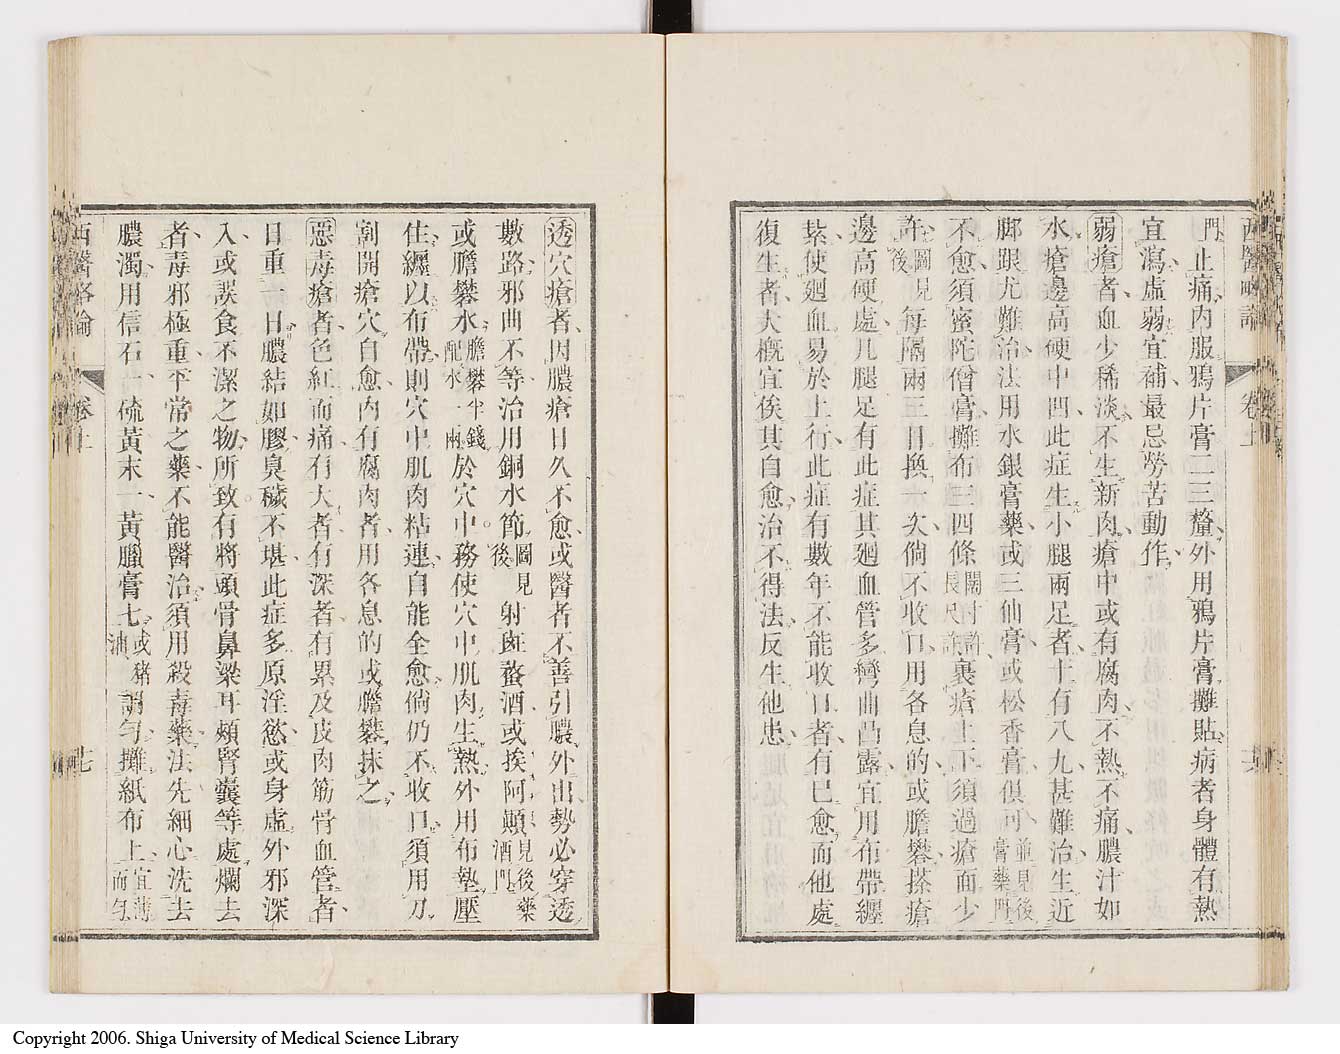 西醫略論 卷上
門止痛内服鴉片膏二三釐外用鴉片膏攤貼病者身體有熱
宜瀉虛弱宜補最忌勞苦動作
弱瘡者血少稀淡不生新肉瘡中或有腐肉不熱不痛膿汁如
水瘡邊高硬中凹此症生小腿兩足者十有八九甚難治生近
脚跟尤難治法用水銀膏藥或三仙膏或松香膏俱可並見後膏藥門
不愈須蜜陀僧膏攤布三四條闊寸許長尺許裹瘡上下須過瘡面少
許圖見後每隔兩三日換一次倘不收口用各息的或膽礬搽瘡
邊高硬處凡腿足有此症其廻血管多彎曲凸露宜用布帶纏
紮使廻血易於上行此症有數年不能收口者有已愈而他處
復生者大概宜俟其自愈治不得法反生他患
透穴瘡者因膿瘡日久不愈或醫者不善引膿外出勢必穿透
數路邪曲不等治用銅水節圖見後射斑蝥酒或挨阿顛見後藥酒門
或膽礬水膽礬半錢配水一兩於穴中務使穴中肌肉生熱外用布墊壓
住纏以布帶則穴中肌肉粘連自能全愈倘仍不收口須用刀
割開瘡穴自愈内有腐肉者用各息的或膽礬抹之
惡毒瘡者色紅而痛有大者有深者有累及皮肉筋骨血管者
日重一日膿結如膠臭穢不堪此症多原淫慾或身虛外邪深
入或誤食不潔之物所致有將頭骨鼻梁耳頰腎囊等處爛去
者毒邪極重平常之藥不能醫治須用殺毒藥法先細心洗去
膿濁用信石一硫黃末一黃臘膏七或豬油調勻攤紙布上宜薄而勻
西醫略論 卷上 廿